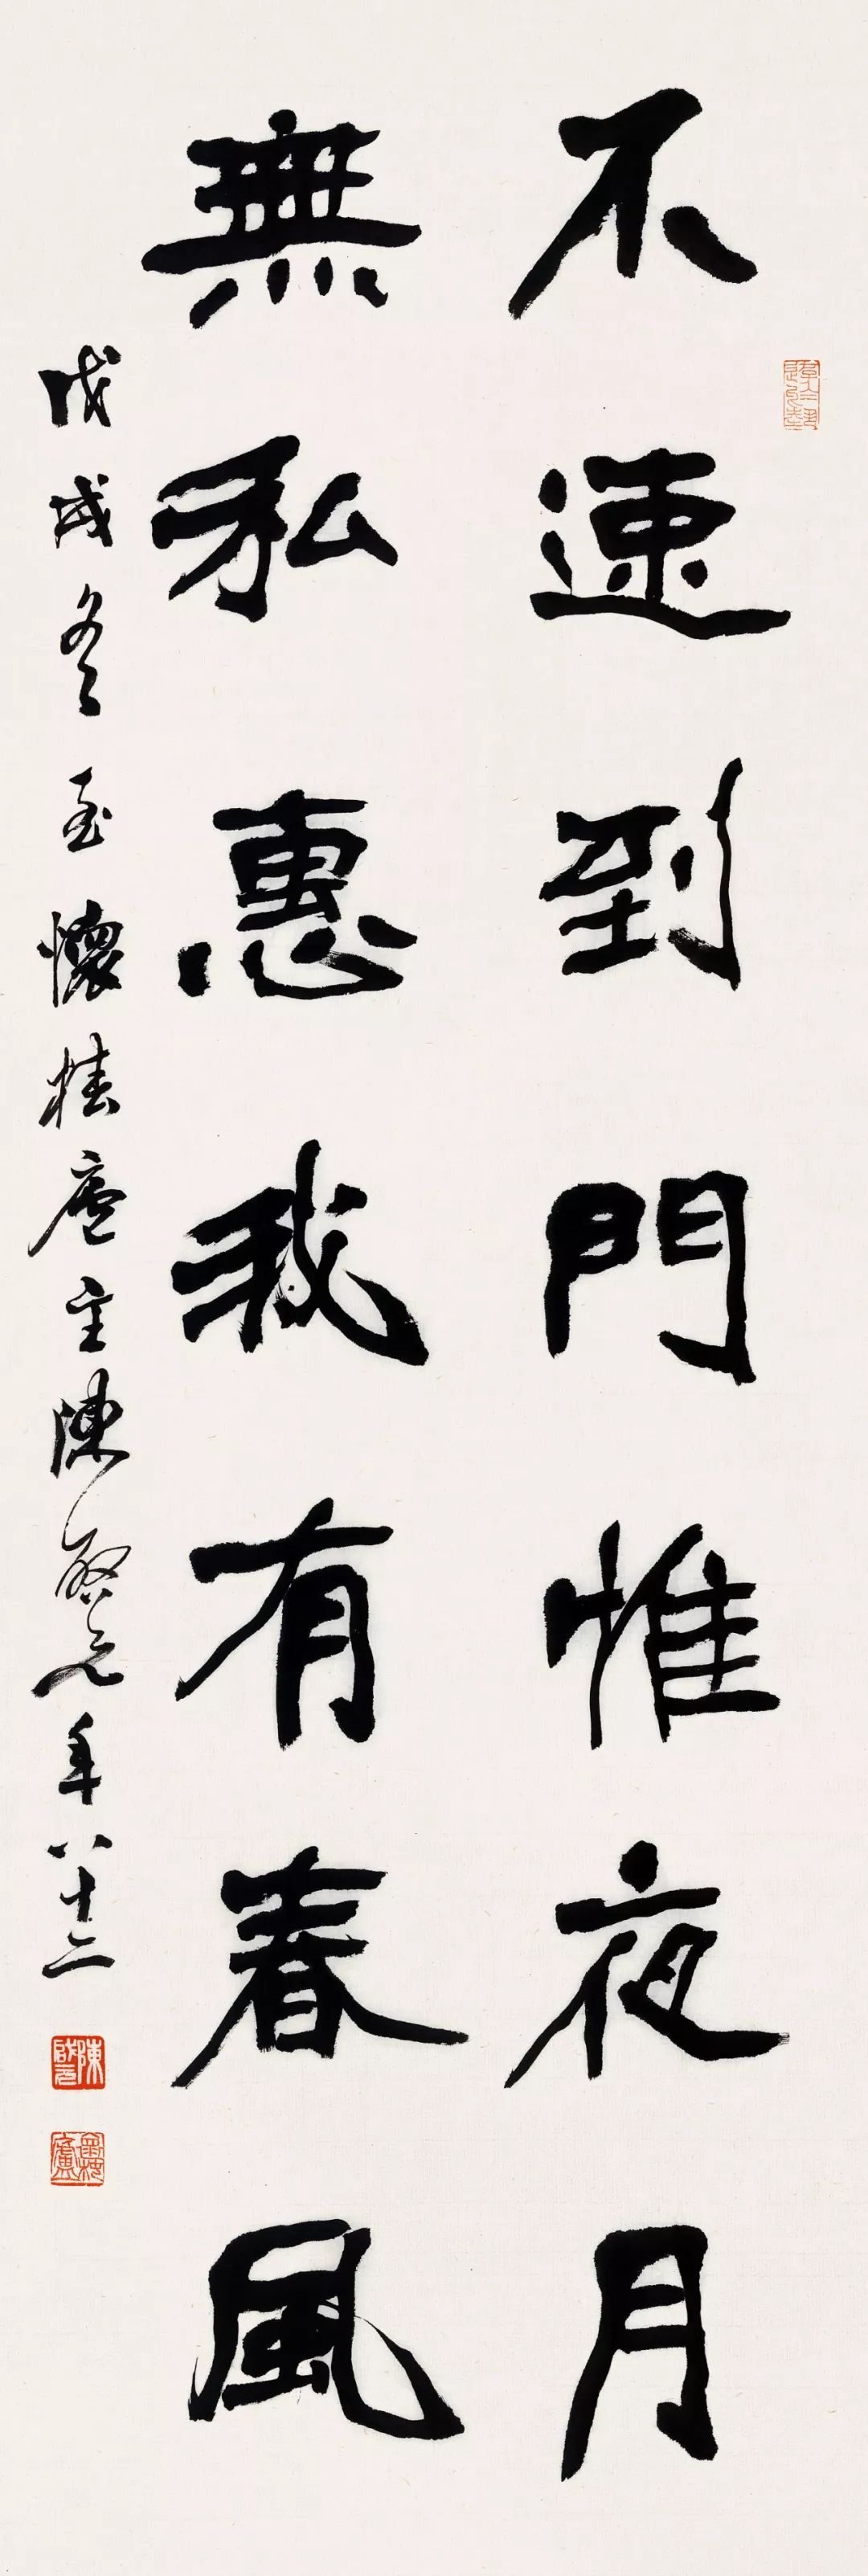 不速到門惟夜月
無私惠我有春風
戊戌冬至懷桂廬主陳啟元年八十二
陳啟元